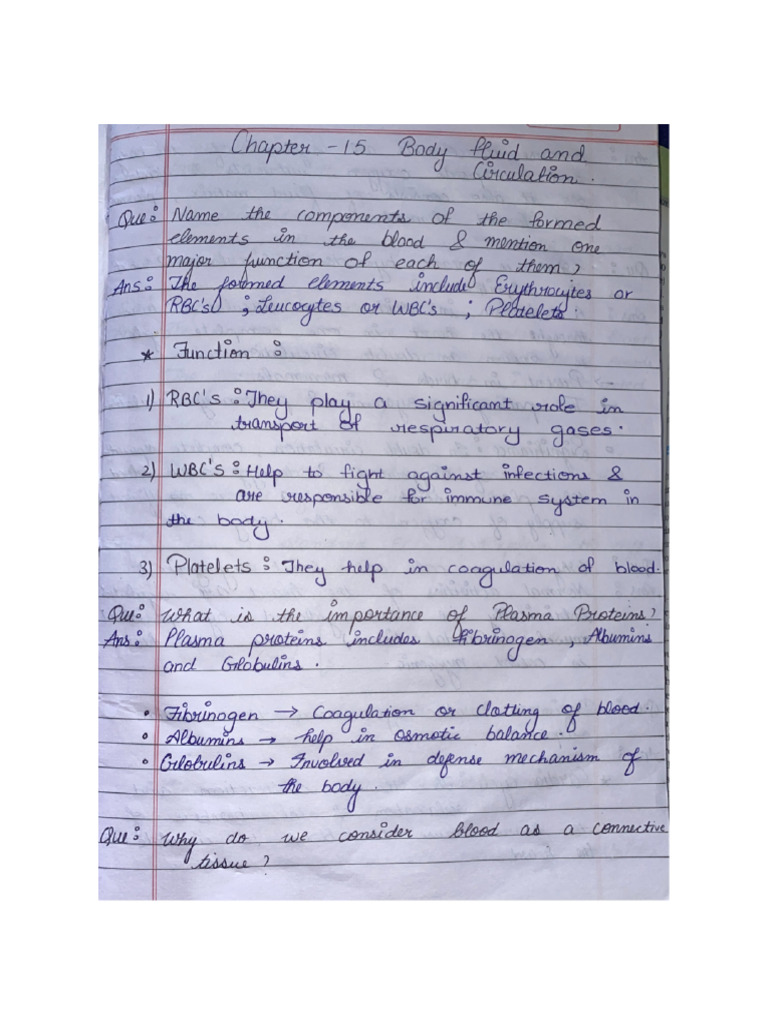 Chapter -15 Body fluid and
Circulation.
Que: Name the components of the formed
elements in the blood & mention one
major function of each of them?
Ans: The formed elements include Erythrocytes or
RBC's ; Leucocytes or WBC's ; Platelets.
* Function :
1) RBC's : They play a significant role in
transport of respiratory gases.
2) WBC's : Help to fight against infections &
are responsible for immune system in
the body.
3) Platelets : They help in coagulation of blood.
Que: What is the importance of Plasma Proteins?
Ans: Plasma proteins includes Fibrinogen, Albumins
and Globulins.
• Fibrinogen → Coagulation or clotting of blood.
• Albumins → help in osmotic balance.
• Globulins → Involved in defense mechanism of
the body.
Que: Why do we consider blood as a connective
tissue?